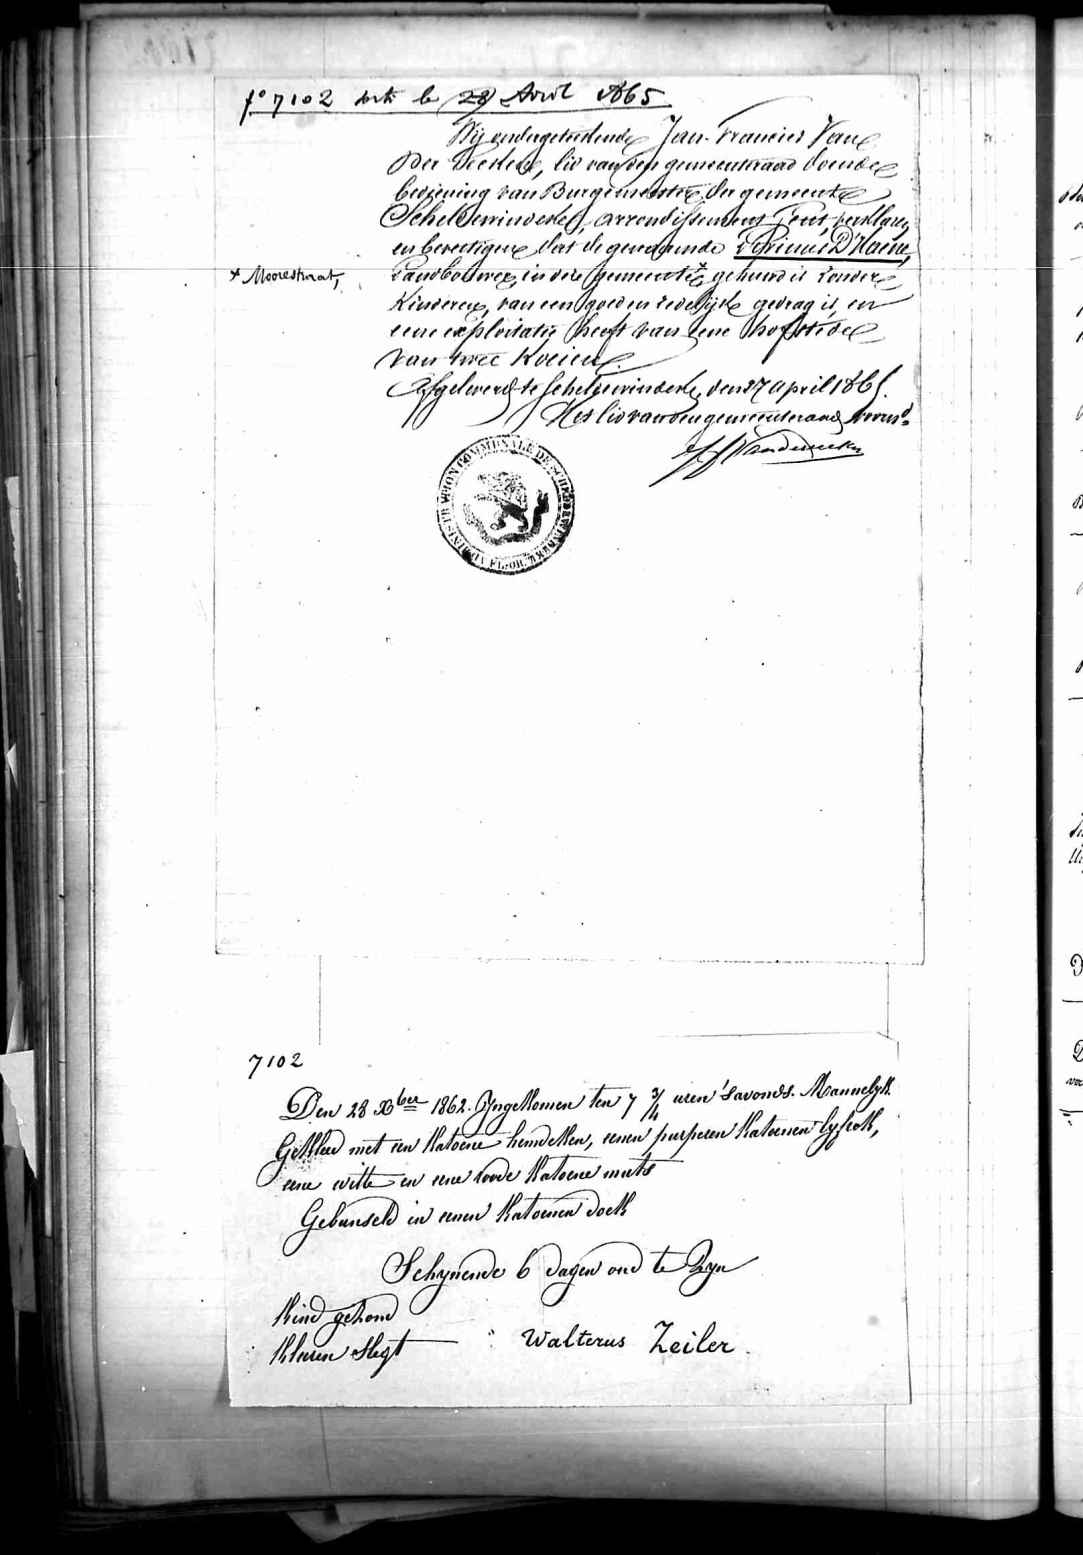 f° 7102 sorti le 28 Avril 1865
Wij ondergeteekende Jan-Francies Van
Der Veeken, lid van den gemeenteraad doende
bediening van Burgemeester der gemeente
Scheldewindeke, arrondissement Gent, verklaren
en bevestigen dat de genaamde Perinus D'Haene,
× Moorestraat,
Landbouwer, in deze gemeente × gehuwd is zonder
Kinderen, van een goed en zedelijk gedrag is, en
eene exploitatie heeft van eene hofstede
van twee Koeien.
Afgeleverd te Scheldewindeke, den 27 april 1865.
Het lid van den gemeenteraad voors.d
ADMINISTRATION COMMUNALE DE SCHELDEWINDEKE
FL. OR.
7102
Den 28 Xber 1862. Yngekomen ten 7 3/4 uren 's avonds. Mannelyk
Gekleed met een Katoene hemdeken, eenen purperen Katoenen lyfrok,
eene witte en eene roode Katoene muts
Gebunseld in eenen Katoenen doek
Schynende 6 dagen oud te Zyn
Kind gezond
Kleeren slegt
Walterus Zeiler.